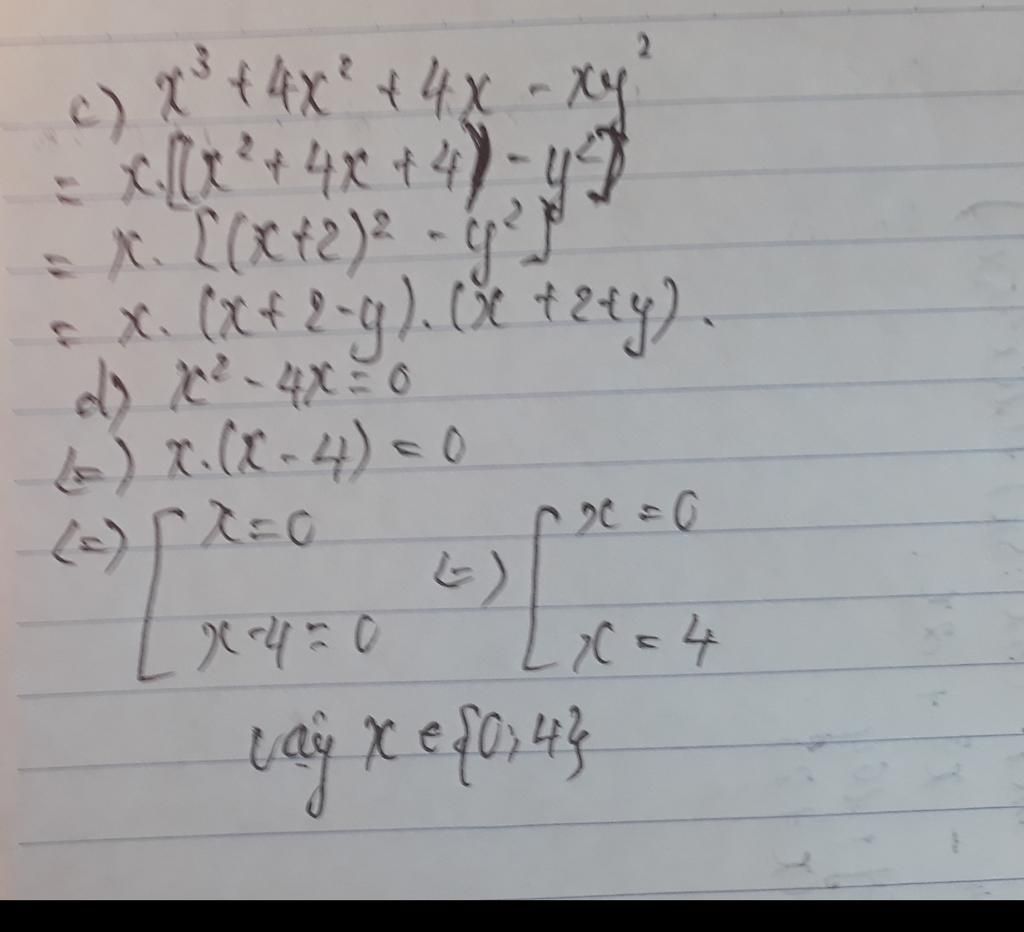 c) x³ + 4x² + 4x - xy²
= x.[(x² + 4x + 4) - y²]
= x. [(x+2)² - y²]
= x. (x + 2 - y). (x + 2 + y).
d) x² - 4x = 0
(=) x.(x - 4) = 0
(=) [ x = 0 (=) [ x = 0
x - 4 = 0 x = 4
vậy x ∈ {0; 4}